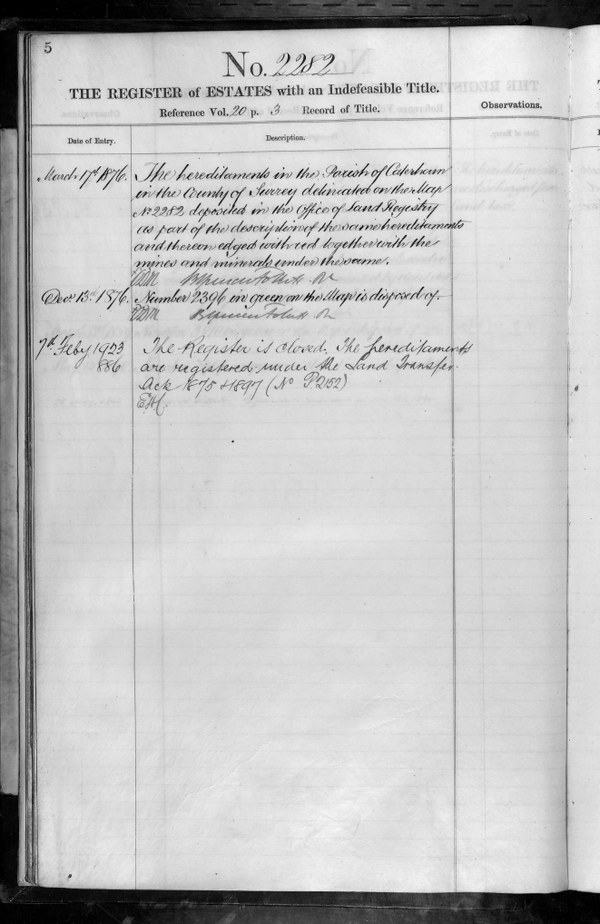 5
No. 2282
THE REGISTER of ESTATES with an Indefeasible Title.
Reference Vol. 20 p. 3 Record of Title.
Observations.
Date of Entry.
Description.
March 17th 1876.
The hereditaments in the Parish of Caterham
in the County of Surrey delineated on the Map
No 2282 deposited in the Office of Land Registry
as part of the description of the same hereditaments
and thereon edged with red together with the
mines and minerals under the same.
Decr 13th 1876.
Number 2396 in green on the Map is disposed of.
7th Feby 1923
886
The Register is closed. The hereditaments
are registered under the Land Transfer
Acts 1875 & 1897 (No P2152)